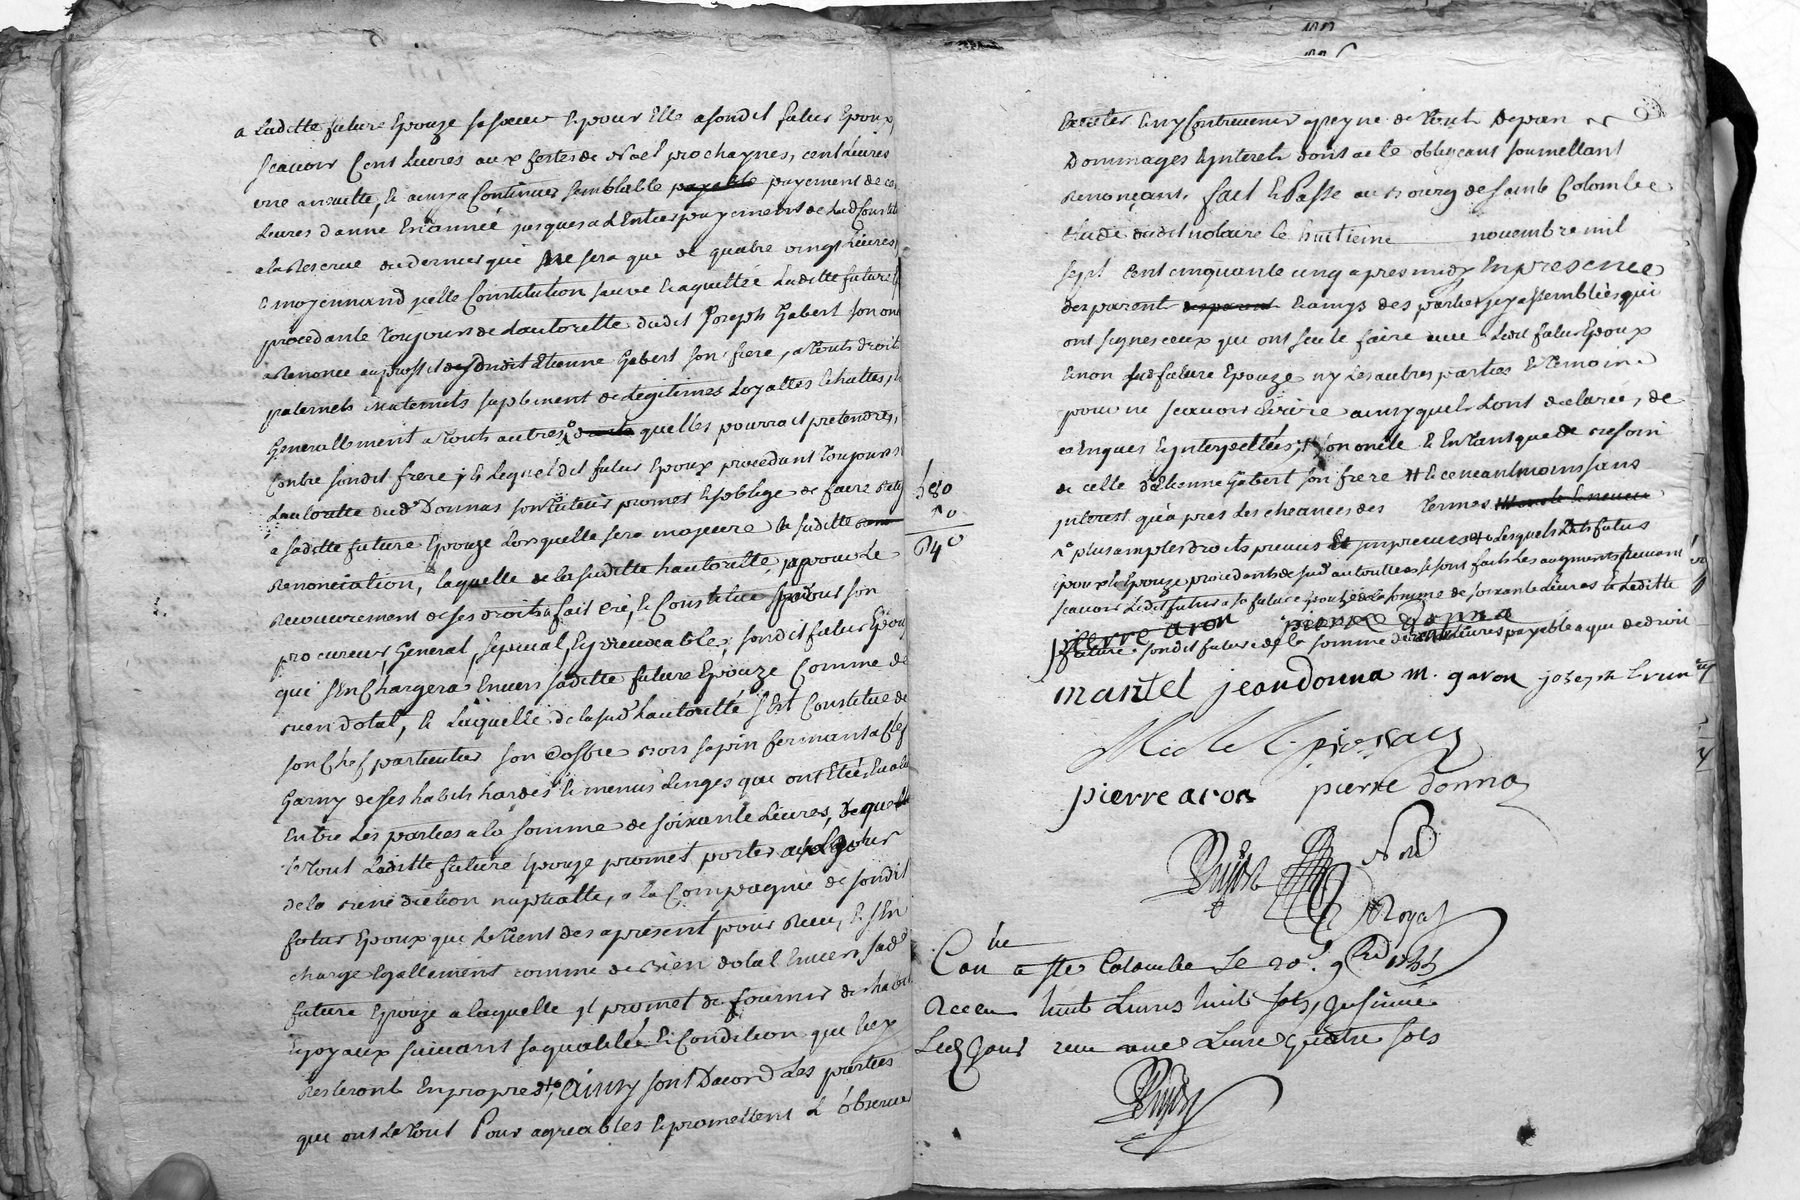 a Laditte future Epouze sa soeur Et pour Elle a sondit futur Epoux,
scavoir Cent Livres aux festes de Noel prochaynes, cent Livres
une an suitte, et ainsy a Continuer semblable payable payement de ce
Livres d'année En année jusques a L'Entier payement de Lad Constit
a la Reserve du dernier qui ne sera que de quatre vingt Livres
Et moyennand quelle Constitution sauve Et aquittée Laditte future
procedante toujours de L'autoritte dudit Joseph Gabert son on
a Renoncé au proffit dudit Etienne Gabert son frere, a touts droits
paternels Maternels suplement de Legitimes Loyalles Echuttes, et
Generallement a touts autres droits quelles pourroit pretendre,
Contre sondit frere, Et Lequel dit futur Epoux procedant toujours
L'autoritte dud Donnas son tuteur promet Et s'oblige de faire Ratif
a saditte future Epouze Lors quelle sera majeure La suditte
Renonciation, Laquelle de la suditte hautoritté, pour Le
Recouvrement de ses droits a fait Cré, Et Constitué pour son
procureur, General, special, Et yrrevocable, sondit futur Epoux
qui s'En Chargera Envers saditte future Epouze Comme de
bien dotal, Et Laquelle de la sud hautoritté s'Est Constitué de
son Chef particulier son Coffre bois sapin fermant a Clef
Garny de ses habits hardes Et menus Linges qui ont Eté Evalué
Entre Les parties a la somme de soixante Livres, Lequel
Le tout Laditte future Epouze promet porter au jour
de la benediction nuptialle, a la Compagnie de sondit
futur Epoux qui Le tient des apresent pour Reçu, Et s'En
charge Egallement comme de bien dotal Envers sad
future Epouze a laquelle il promet de fournir de habits
Et joyaux suivant sa qualité Et Condition qui Luy
Resteront En propre, Ainsy sont Dacord Les parties
qui ont Le tout Pour agreables Et promettent L'observer
580
60
640
Executer Et ny Contrevenir a peyne de touts Depan
Dommages Et ynterets dont acte obligeant soumettant
Renonçant. fait Et Passé au Bourg de sainte Colombe
Etude dudit notaire le huitieme novembre mil
sept cent cinquante cinq apres midy En presence
des parent des parent Et amys des parties y assemblées qui
ont signes ceux qui ont sceu le faire avec Ledit futur Epoux
Et non Lad future Epouze ny Les autres parties Et temoins
pour ne scavoir Ecrire ainsy quils L'ont declaré, de
ce Enquis Et interpellées, son oncle Et En tant que de besoin
de celle d'Etienne Gabert son frere # Et ce neantmoins sans
interest qu'apres Les cheances des termes
plus amples droits prevus Et impreveus # Lesquels dits futurs
Epoux Et Epouze procedants de sud autoritte se sont faits Les augments suivant
scavoir Ledit futur a sa future Epouze de la somme de soixante Livres Et Laditte
pierre aron pierre donna
future a sondit futur de la somme de trente Livres payable a qui de droit
mantel jean donna m. garon joseph brun
pierre aron pierre donna
Pujol
Nore
Royal
Con a Ste Colombe Le 20 9bre 1755
Receu huit Livres huit sols, Insinué
Led Jour receu une Livre quatre sols
Pujol